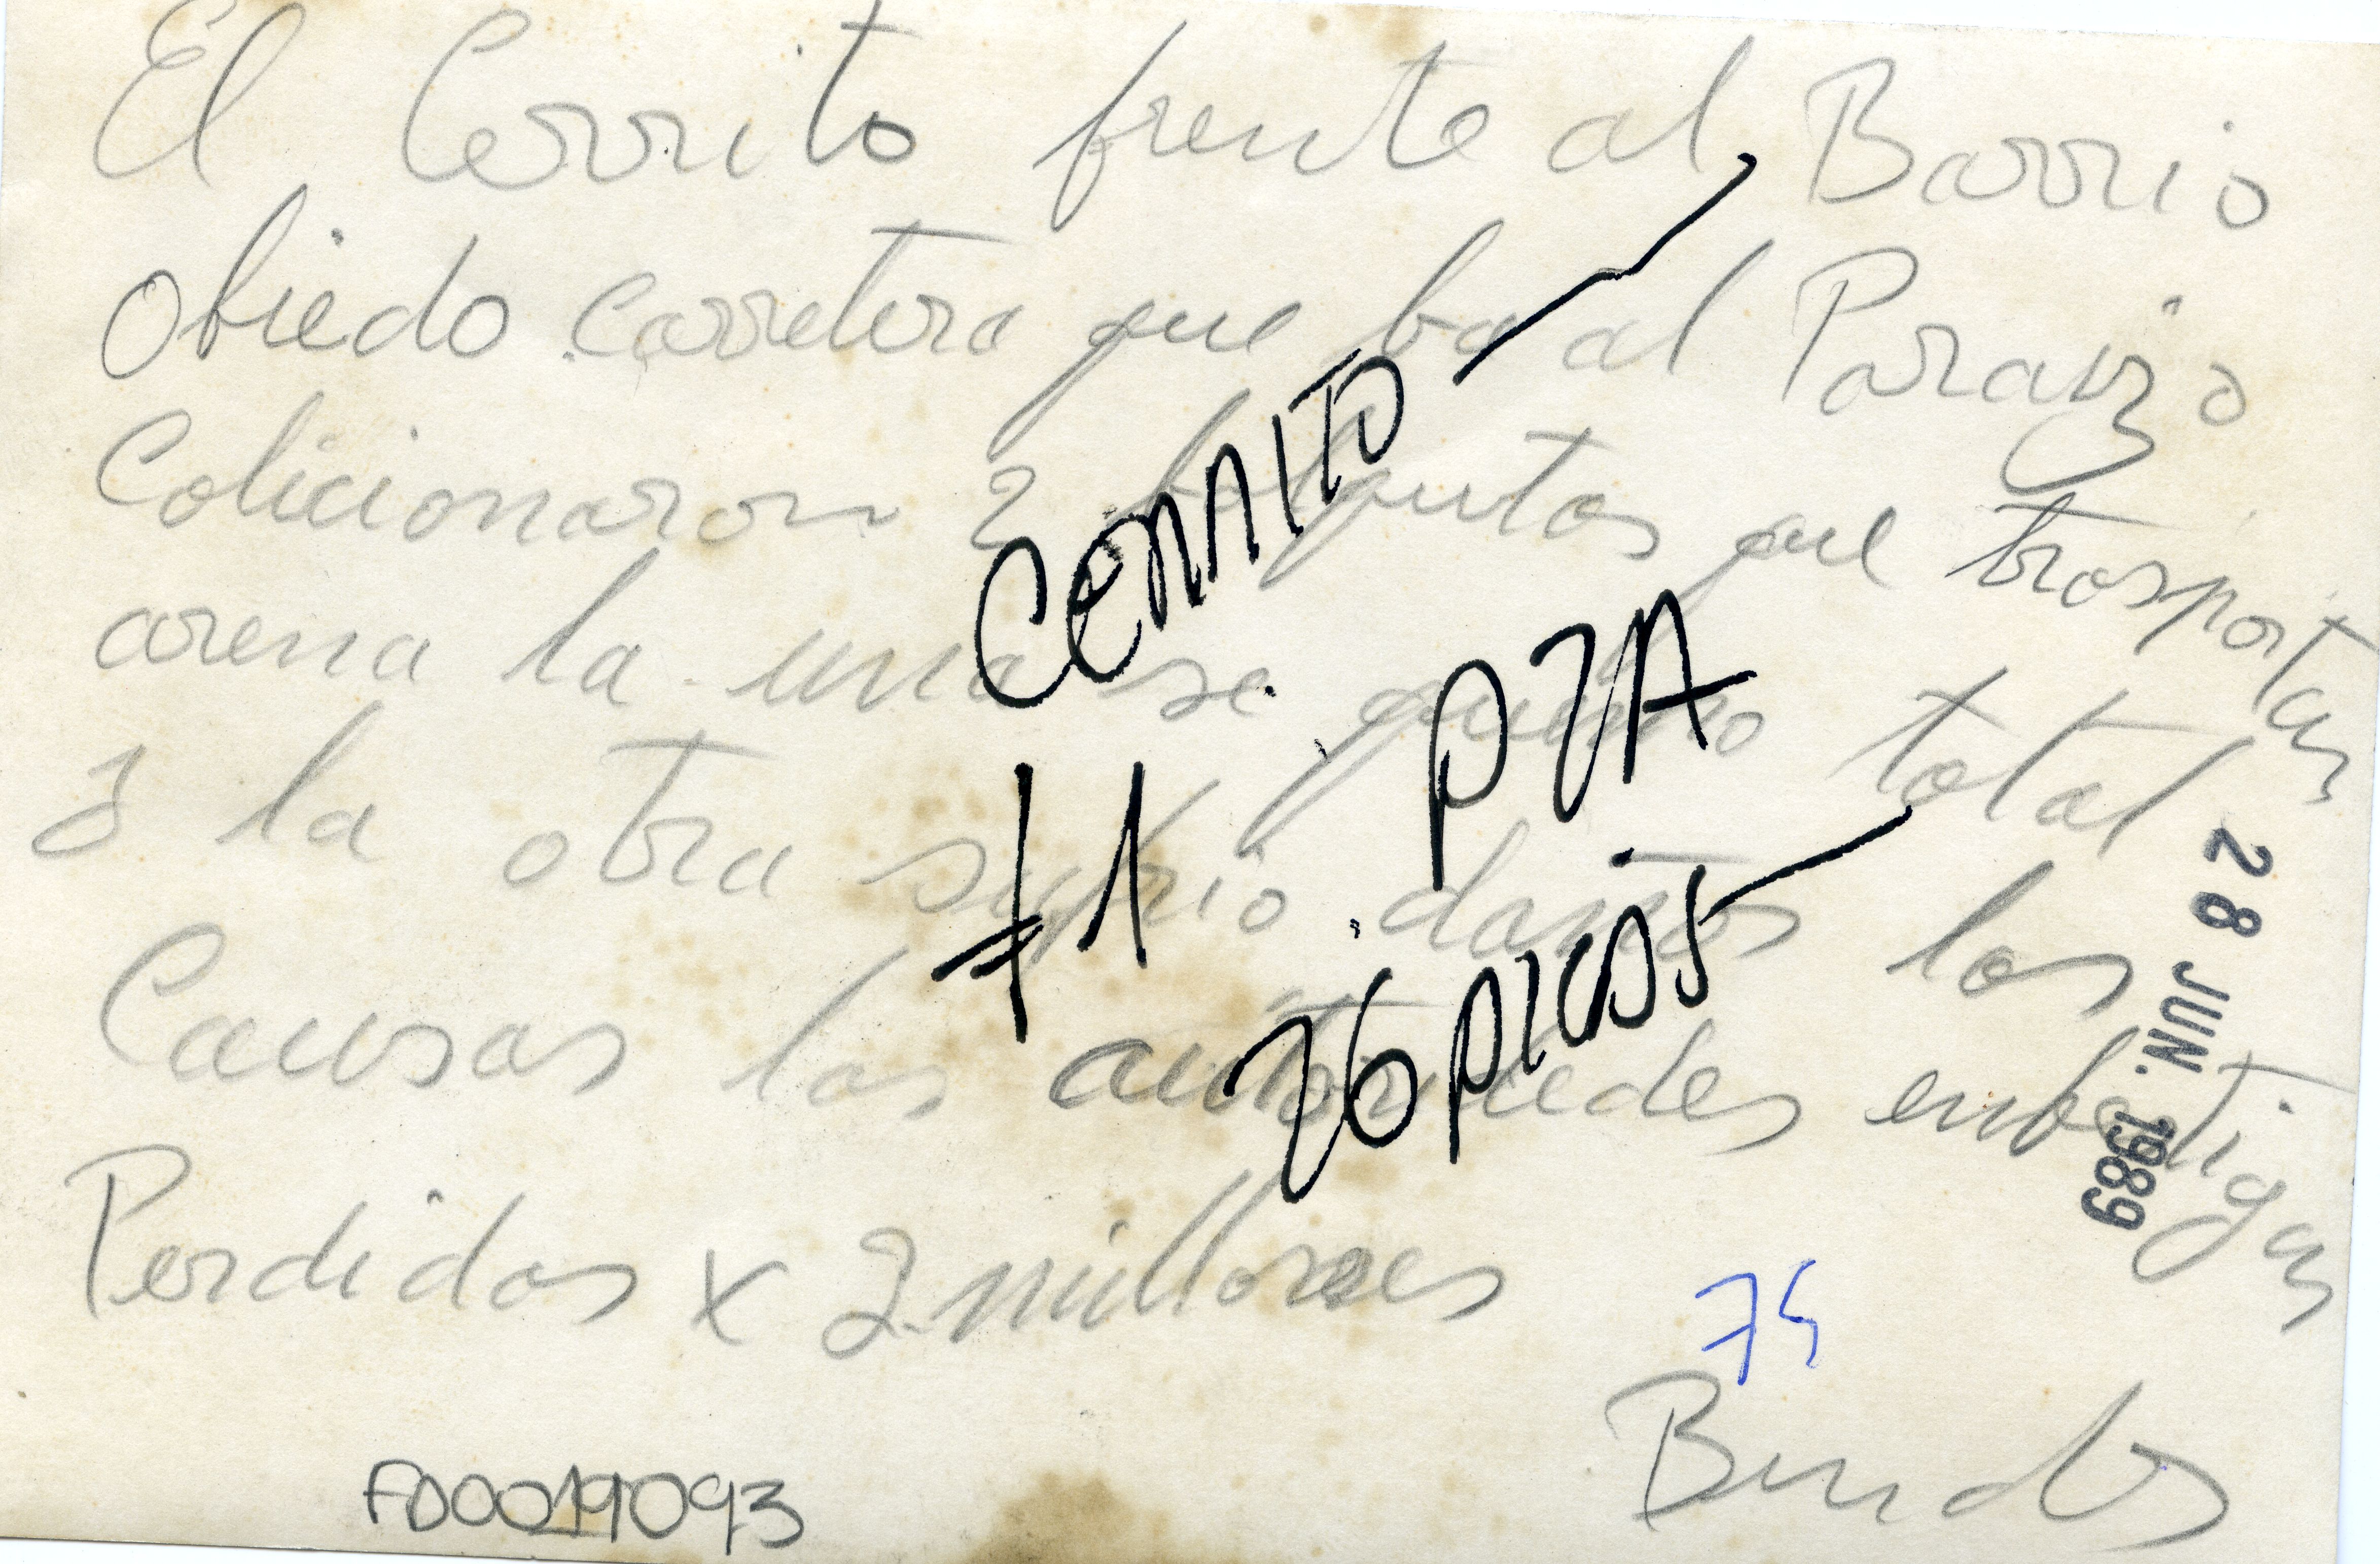 El Cerrito frente al Barrio
Obiedo carretera que ba al Paraizo
Colicionaron 2 bolquetas que trasportan
arena la una se quemo total
y la otra sufrio daños las
Causas las autoridedes enbestigan
Perdidas x 2 millones
CERRITO
#1 PZA
26 PICAS
28 JUN. 1989
75
FD0019093